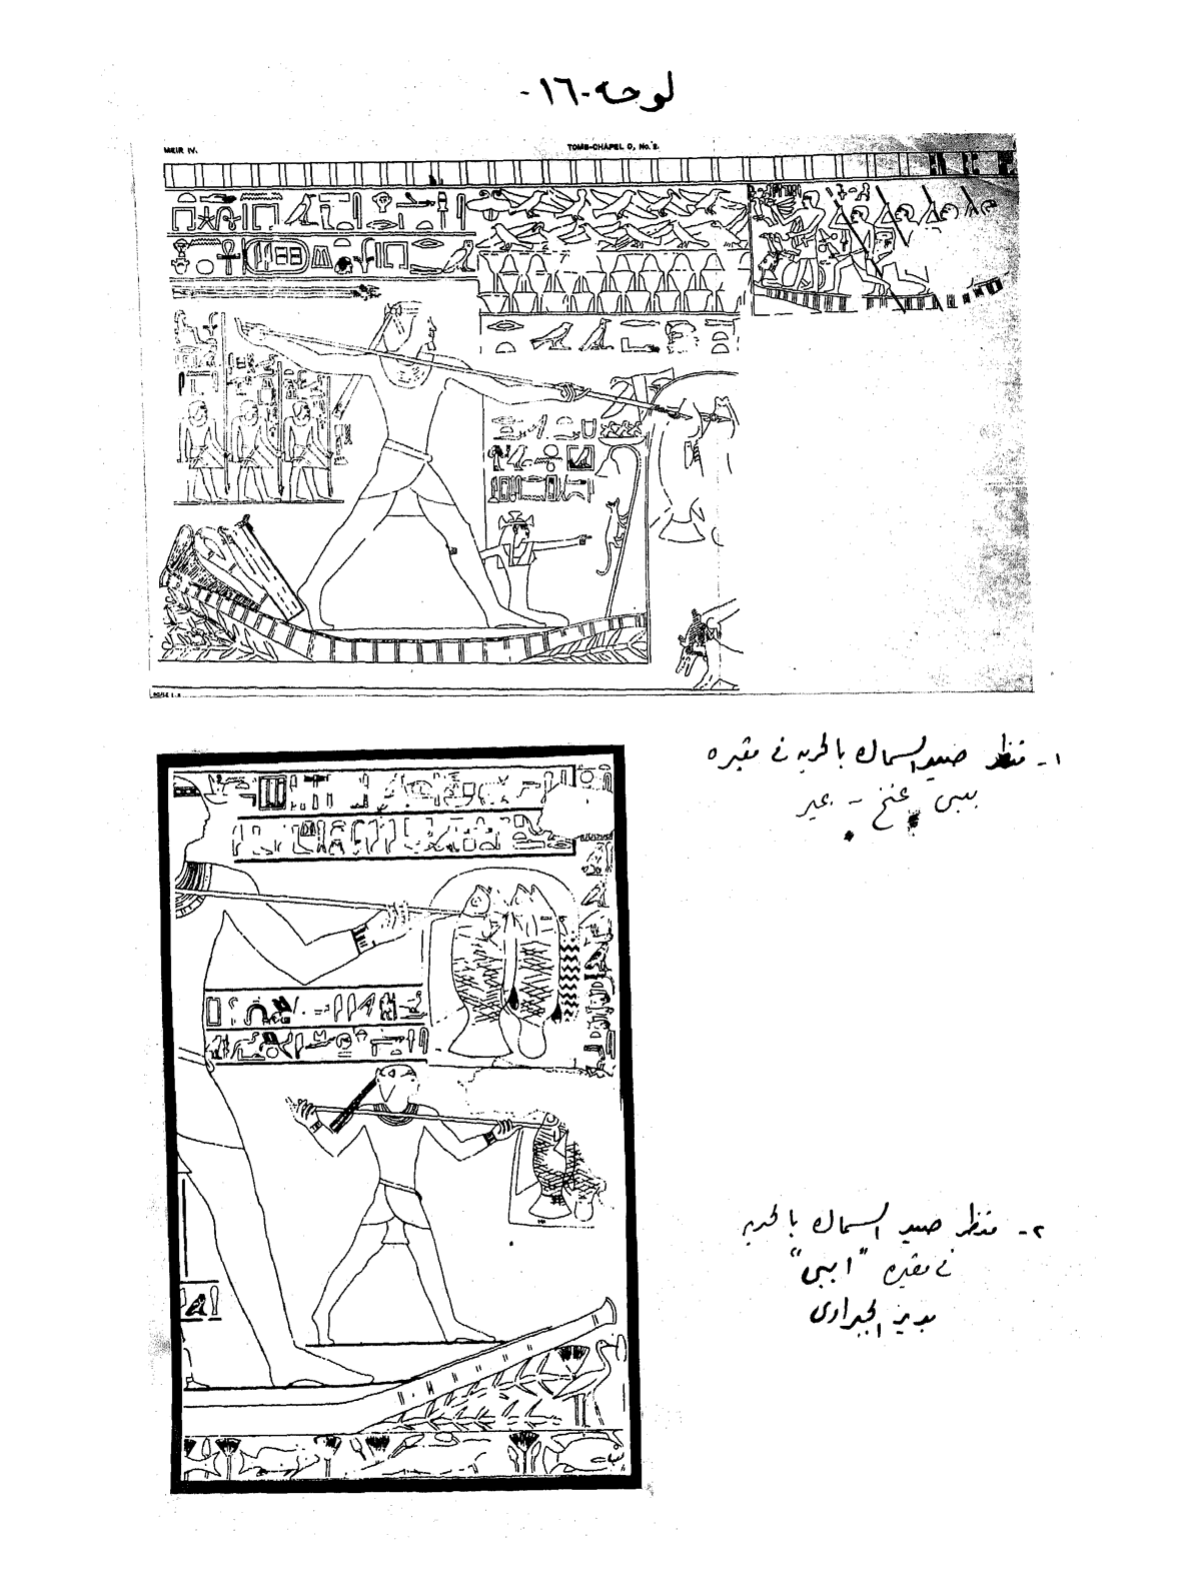 لوحه -١٦-
MEIR IV.
TOMB-CHAPEL D, No. 2.
١- منظر صيد السماك بالحربه فى مقبره
بيبى عنخ - بمير
٢- منظر صيد السماك بالحربه
فى مقبره "ابيى"
بدير الجبراوى